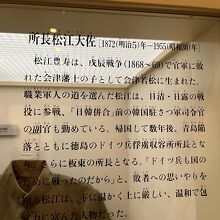 所長松江大佐 [1872(明治5)年－1955(昭和30)年]
松江豊寿は、戊辰戦争(1868~69)で官軍に敗
れた会津藩士の子として会津若松に生まれた。
職業軍人の道を選んだ松江は、日清・日露の戦
役に参戦、「日韓併合」前の韓国駐さつ軍司令官
の副官も勤めている。帰国して数年後、青島陥
落とともに徳島のドイツ兵俘虜収容所所長とな
り、さらに板東の所長となる。「ドイツ兵も国の
ために戦ったのだから」と、敗者への思いやりを
知る松江は、下に温かく上に厳しい、温和で包
に満ちた人物だった。